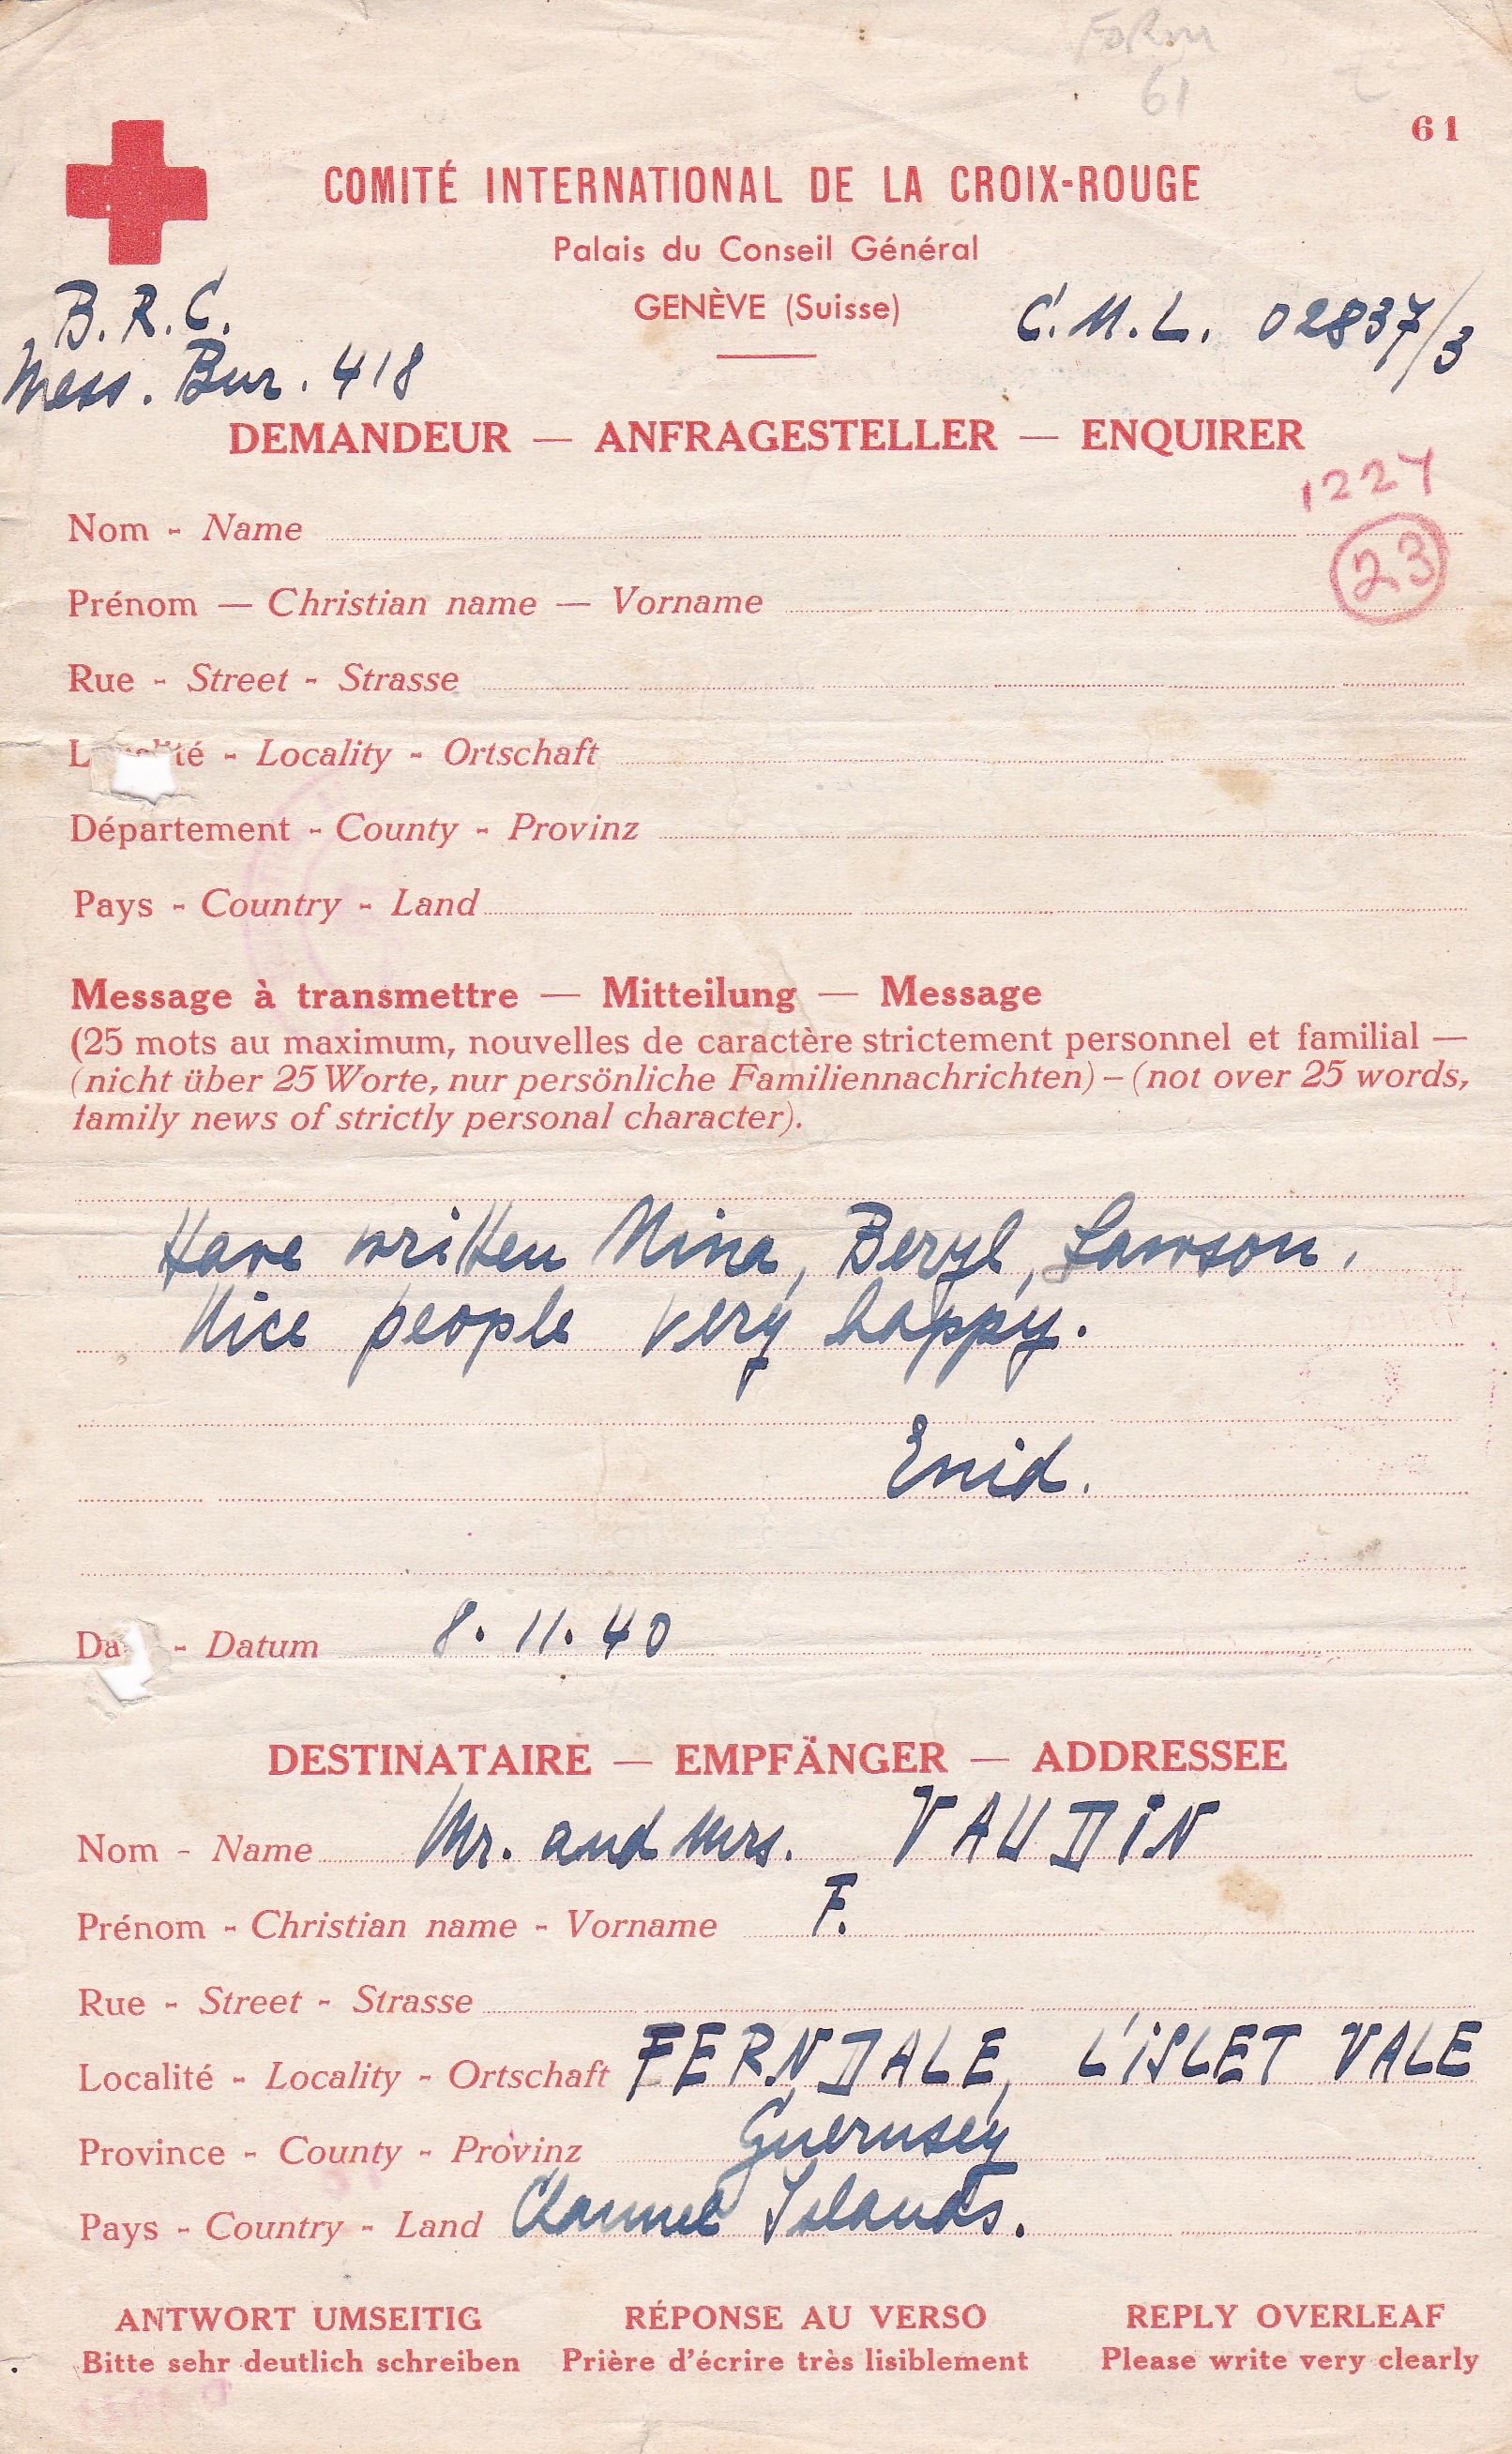 Form
61
61
COMITÉ INTERNATIONAL DE LA CROIX-ROUGE
Palais du Conseil Général
GENÈVE (Suisse)
B.R.C.
Mess. Bur. 418
C.M.L. 02837/3
DEMANDEUR — ANFRAGESTELLER — ENQUIRER
1224
23
Nom - Name
Prénom — Christian name — Vorname
Rue - Street - Strasse
- Locality - Ortschaft
Département - County - Provinz
Pays - Country - Land
Message à transmettre — Mitteilung — Message
(25 mots au maximum, nouvelles de caractère strictement personnel et familial —
(nicht über 25 Worte, nur persönliche Familiennachrichten) – (not over 25 words,
family news of strictly personal character).
Have written Nina, Beryl, Lawson.
Nice people very happy.
Enid.
- Datum 8. 11. 40
DESTINATAIRE — EMPFÄNGER — ADDRESSEE
Nom - Name Mr. and Mrs. VAUDIN
Prénom - Christian name - Vorname F.
Rue - Street - Strasse
Localité - Locality - Ortschaft FERNDALE, L'iSLET VALE
Province - County - Provinz Guernsey
Pays - Country - Land Channel Islands.
ANTWORT UMSEITIG RÉPONSE AU VERSO REPLY OVERLEAF
Bitte sehr deutlich schreiben Prière d'écrire très lisiblement Please write very clearly